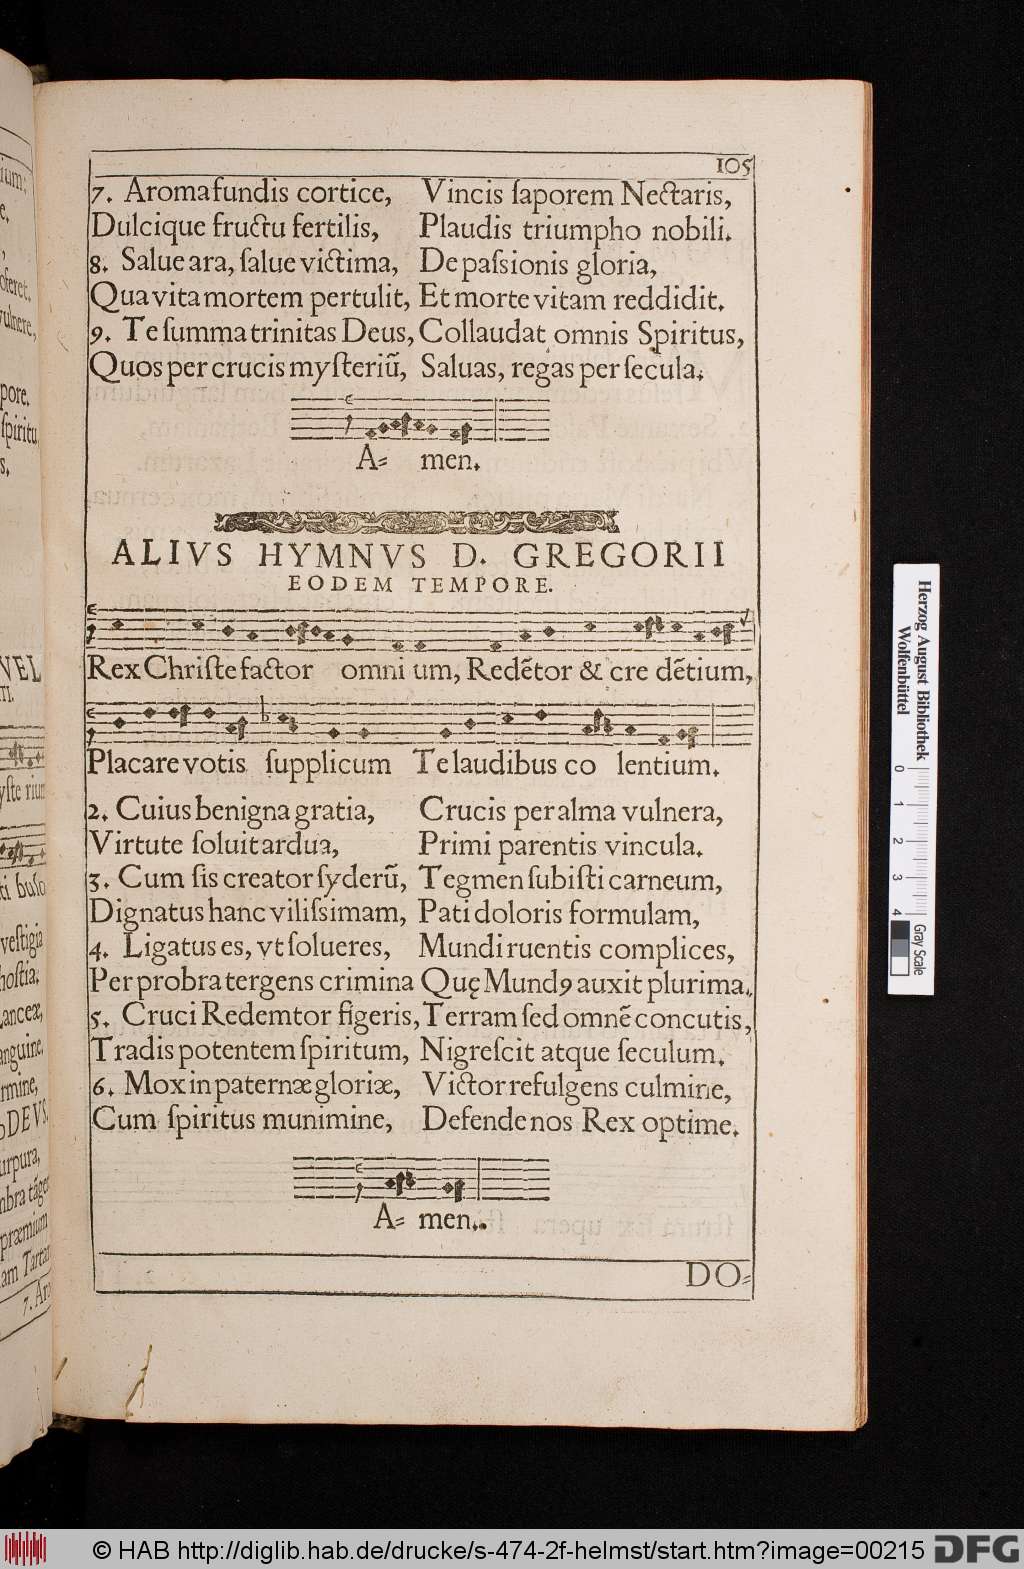 105
7. Aroma fundis cortice, Vincis ſaporem Nectaris,
Dulcique fructu fertilis, Plaudis triumpho nobili.
8. Salue ara, ſalue victima, De paſsionis gloria,
Qua vita mortem pertulit, Et morte vitam reddidit.
9. Te ſumma trinitas Deus, Collaudat omnis Spiritus,
Quos per crucis myſteriũ, Saluas, regas per ſecula.
A= men.
ALIVS HYMNVS D. GREGORII
EODEM TEMPORE.
Rex Chriſte factor omni um, Redẽtor & cre dẽtium,
Placare votis ſupplicum Te laudibus co lentium.
2. Cuius benigna gratia, Crucis per alma vulnera,
Virtute ſoluit ardua, Primi parentis vincula.
3. Cum ſis creator ſyderũ, Tegmen ſubiſti carneum,
Dignatus hanc viliſsimam, Pati doloris formulam,
4. Ligatus es, vt ſolueres, Mundi ruentis complices,
Per probra tergens crimina Quę Mundꝰ auxit plurima.
5. Cruci Redemtor figeris, Terram ſed omnẽ concutis,
Tradis potentem ſpiritum, Nigreſcit atque ſeculum.
6. Mox in paternæ gloriæ, Victor refulgens culmine,
Cum ſpiritus munimine, Defende nos Rex optime.
A= men.
DO=
Herzog August Bibliothek
Wolfenbüttel
0 1 2 3 4
Gray Scale
© HAB http://diglib.hab.de/drucke/s-474-2f-helmst/start.htm?image=00215
DFG